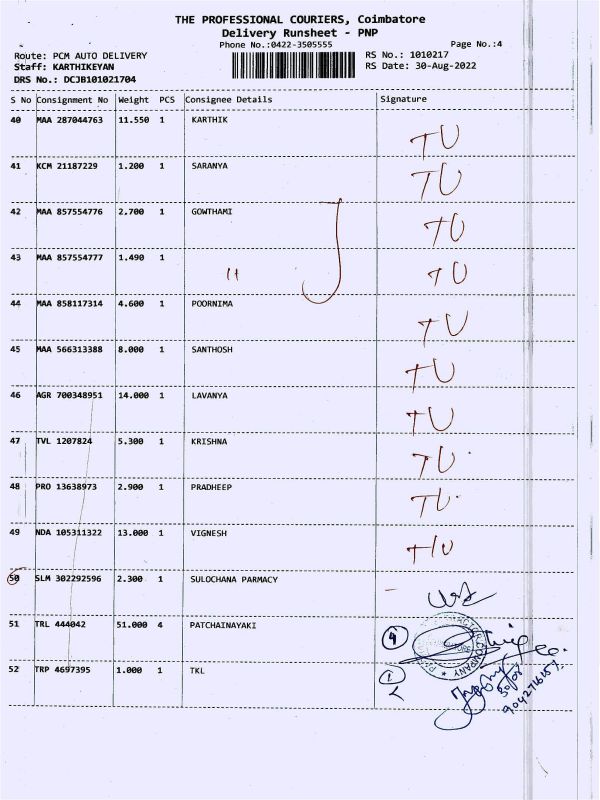 THE PROFESSIONAL COURIERS, Coimbatore
Delivery Runsheet - PNP
Phone No.:0422-3505555 Page No.:4
Route: PCM AUTO DELIVERY RS No.: 1010217
Staff: KARTHIKEYAN RS Date: 30-Aug-2022
DRS No.: DCJB101021704
S No Consignment No Weight PCS Consignee Details Signature
40 MAA 287044763 11.550 1 KARTHIK TU
41 KCM 21187229 1.200 1 SARANYA TU
42 MAA 857554776 2.700 1 GOWTHAMI TU
43 MAA 857554777 1.490 1 " TU
44 MAA 858117314 4.600 1 POORNIMA TU
45 MAA 566313388 8.000 1 SANTHOSH TU
46 AGR 700348951 14.000 1 LAVANYA TU
47 TVL 1207824 5.300 1 KRISHNA TU
48 PRO 13638973 2.900 1 PRADHEEP TU
49 NDA 105311322 13.000 1 VIGNESH TU
50 SLM 302292596 2.300 1 SULOCHANA PARMACY
51 TRL 444042 51.000 4 PATCHAINAYAKI 4
52 TRP 4697395 1.000 1 TKL 1